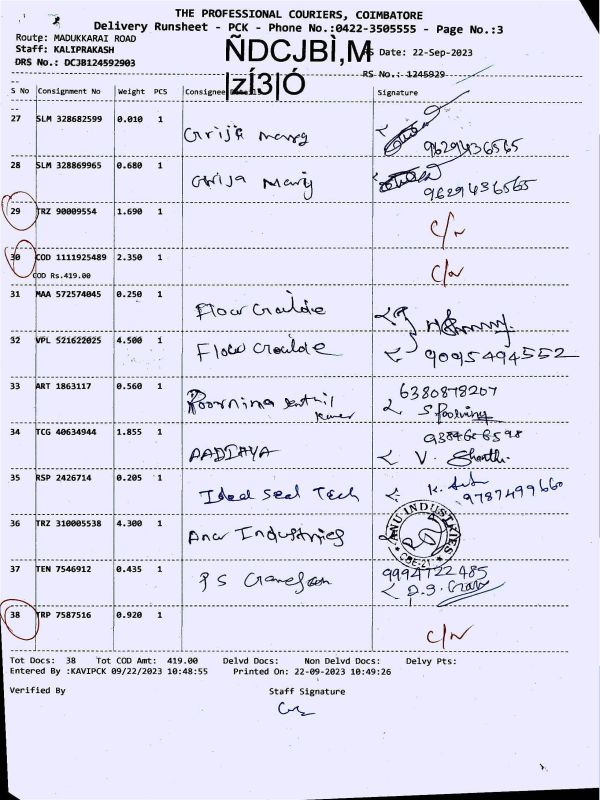 THE PROFESSIONAL COURIERS, COIMBATORE
Delivery Runsheet - PCK - Phone No.:0422-3505555 - Page No.:3
Route: MADUKKARAI ROAD
Staff: KALIPRAKASH ÑDCJBÌ,M RS Date: 22-Sep-2023
DRS No.: DCJB124592903 |zÍ3|Ó RS No.: 1245929
S No Consignment No Weight PCS Consignee Details Signature
27 SLM 328682599 0.010 1 Girija Mary 9629436565
28 SLM 328869965 0.680 1 Girija Mary 9629436565
29 TRZ 90009554 1.690 1 C/N
30 COD 1111925489 2.350 1 C/N
COD Rs.419.00
31 MAA 572574045 0.250 1 Flow
32 VPL 521622025 4.500 1 Flow 9095494552
33 ART 1863117 0.560 1 6380878207
34 TCG 40634944 1.855 1 AADHAYA V. Shanthi
35 RSP 2426714 0.205 1 Ideal Seal Tech 9787499660
36 TRZ 310005538 4.300 1 Anu Industries ANU INDUSTRIES CBE-21
37 TEN 7546912 0.435 1 P S 9994722485
38 TRP 7587516 0.920 1 C/N
Tot Docs: 38 Tot COD Amt: 419.00 Delvd Docs: Non Delvd Docs: Delvy Pts:
Entered By :KAVIPCK 09/22/2023 10:48:55 Printed On: 22-09-2023 10:49:26
Verified By Staff Signature